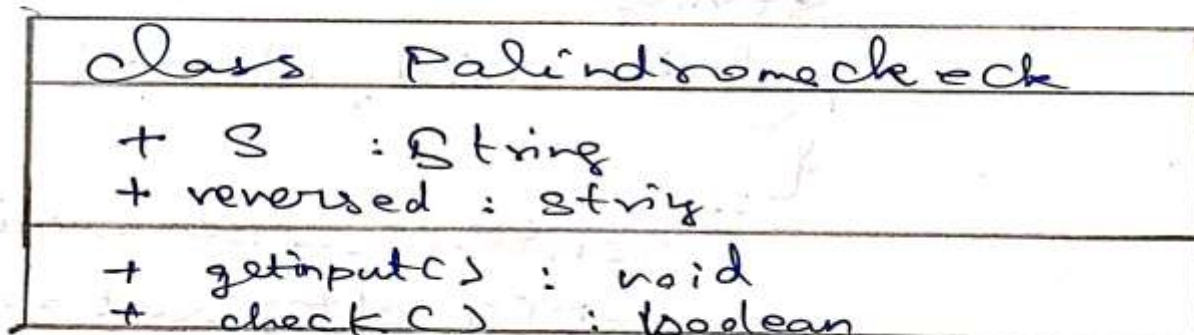 class Palindromecheck
+ S : String
+ reversed : string
+ getinput() : void
+ check() : boolean